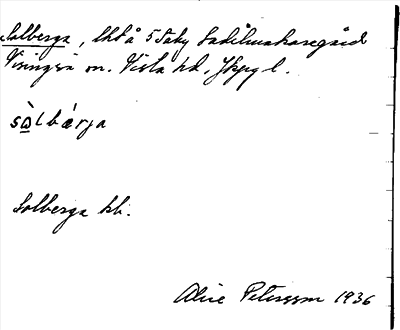 Solberga, lht å 5 Säby Sadelmakaregård
Visingsö sn. Vista hd, Jkpg l.
sòlbærja
Solberga kh.
Alice Petersson 1936